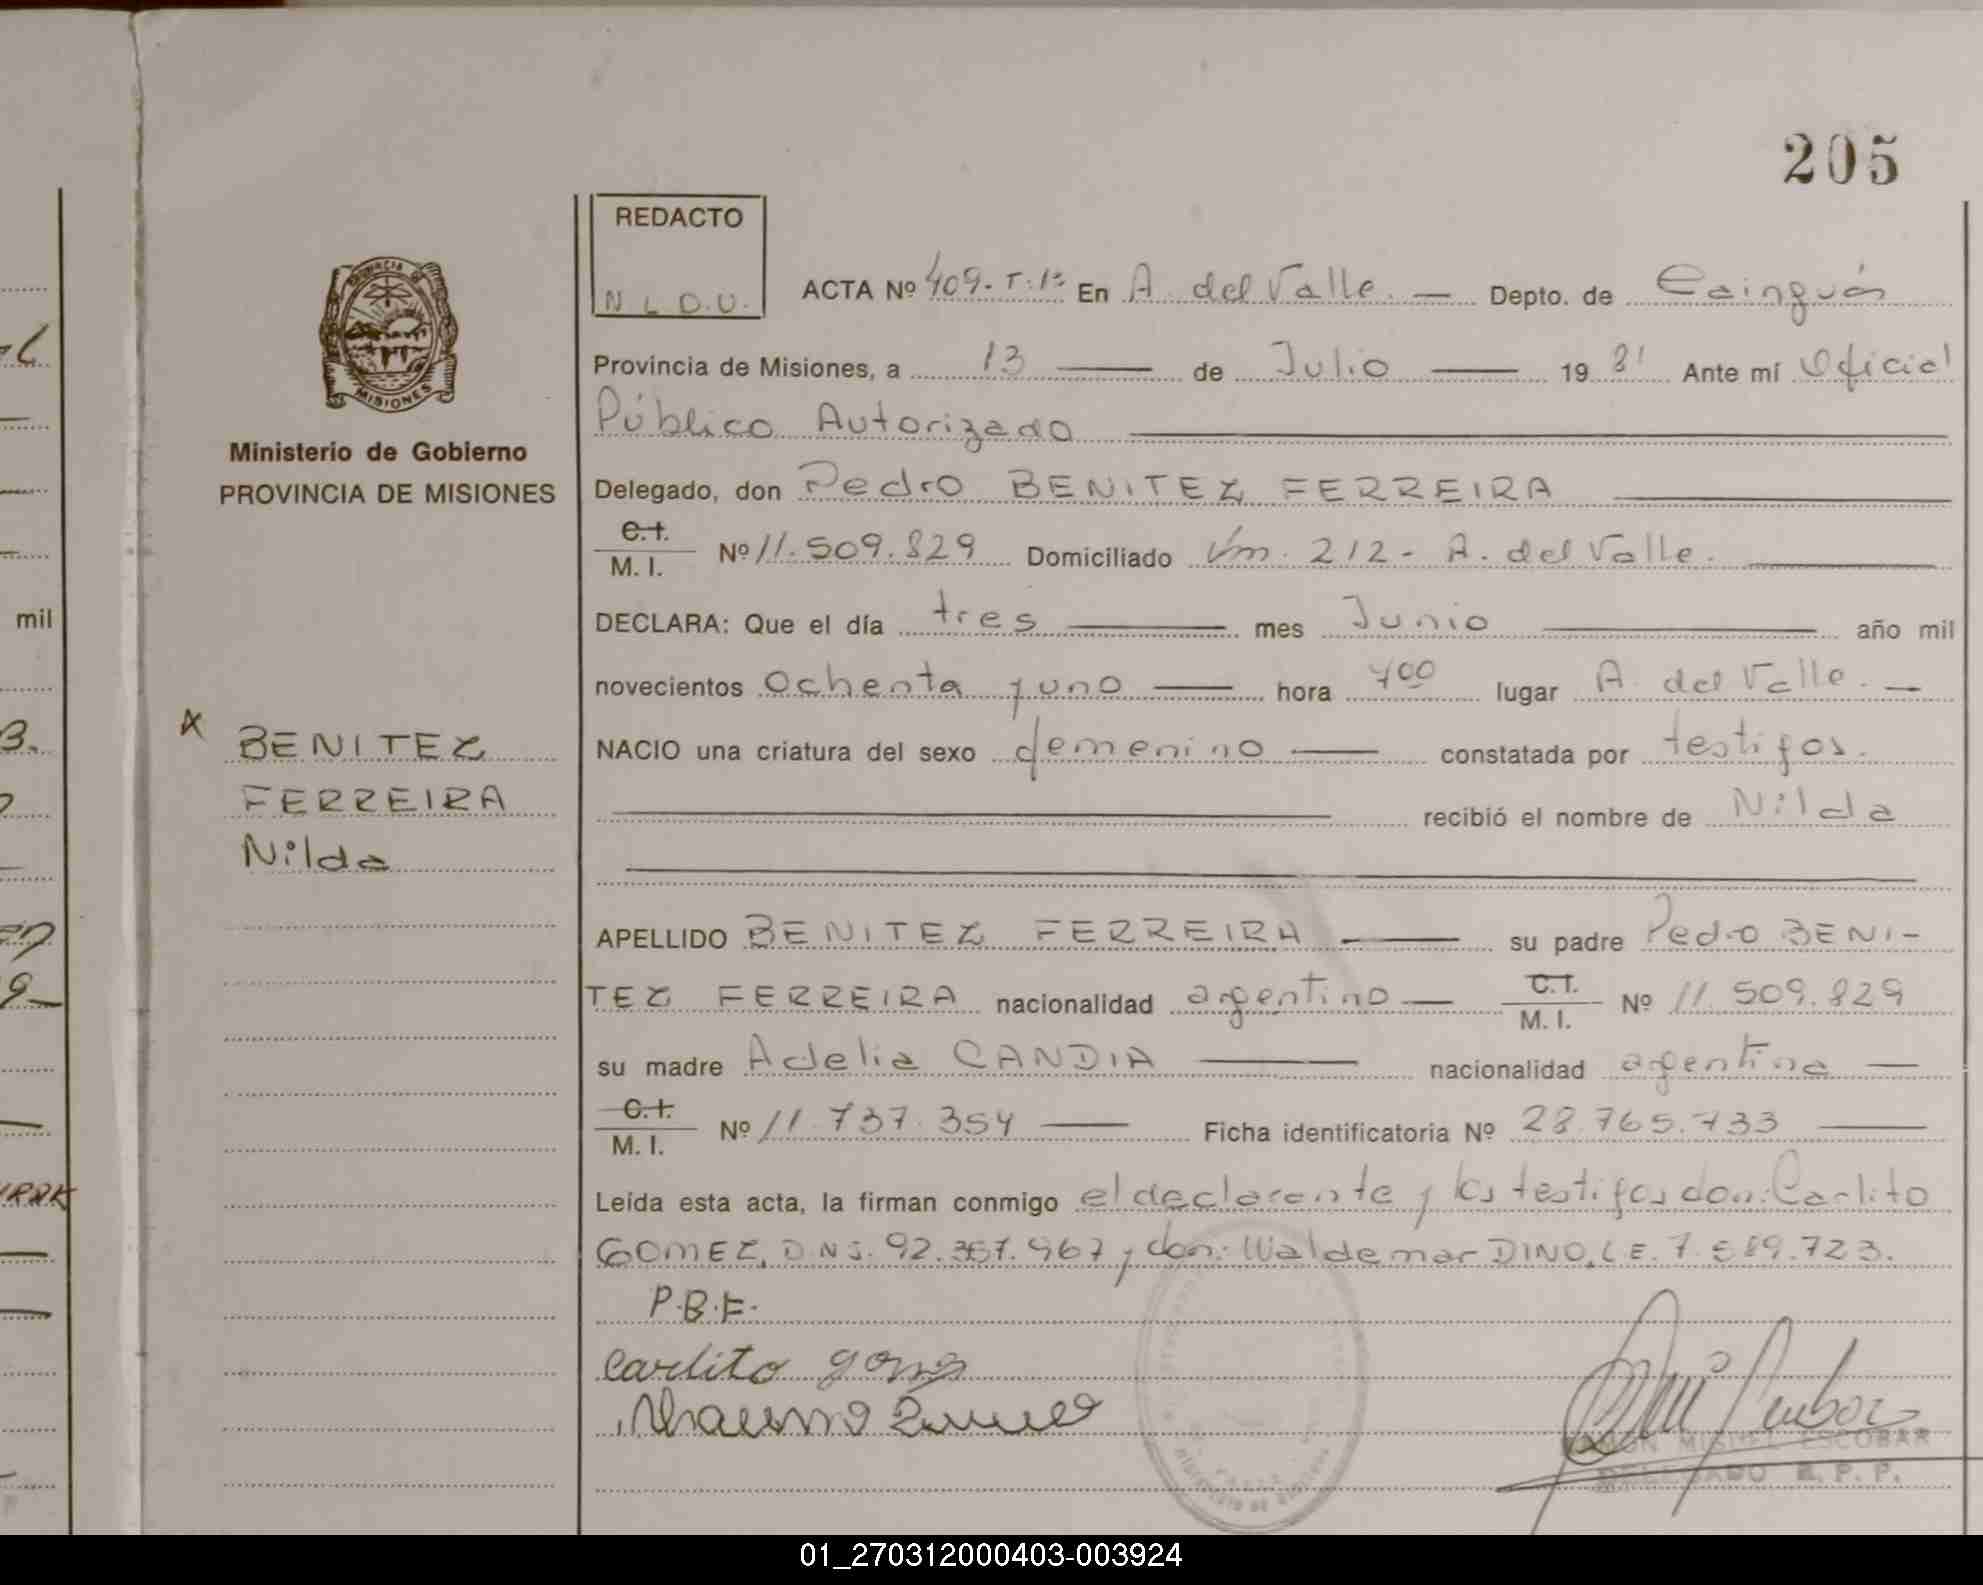 205
REDACTO
N L D.U.
ACTA Nº 409. T. 1º En A. del Valle. — Depto. de Cainguás
Provincia de Misiones, a 13 — de Julio — 1981 Ante mí Oficial
Público Autorizado
Delegado, don Pedro BENITEZ FERREIRA
C.I. M. I. Nº 11.509.829 Domiciliado Km. 212 - A. del Valle.
DECLARA: Que el día tres — mes Junio — año mil
novecientos ochenta y uno — hora 700 lugar A. del Valle. —
NACIO una criatura del sexo femenino — constatada por testigos.
recibió el nombre de Nilda
APELLIDO BENITEZ FERREIRA — su padre Pedro BENI-
TEZ FERREIRA nacionalidad argentino — C.I. M. I. Nº 11.509.829
su madre Adelia CANDIA — nacionalidad argentina —
C.I. M. I. Nº 11.737.354 — Ficha identificatoria Nº 28.765.733 —
Leída esta acta, la firman conmigo el declarante y los testigos don: Carlito
GOMEZ, D.N.I. 92.357.967 y don: Waldemar DINO, L.E. 7.589.723.
P.B.F.
Carlito
MIGUEL ESCOBAR
DELEGADO R. P. P.
PROVINCIA DE
MISIONES
Ministerio de Gobierno
PROVINCIA DE MISIONES
BENITEZ
FERREIRA
Nilda
mil
01_270312000403-003924